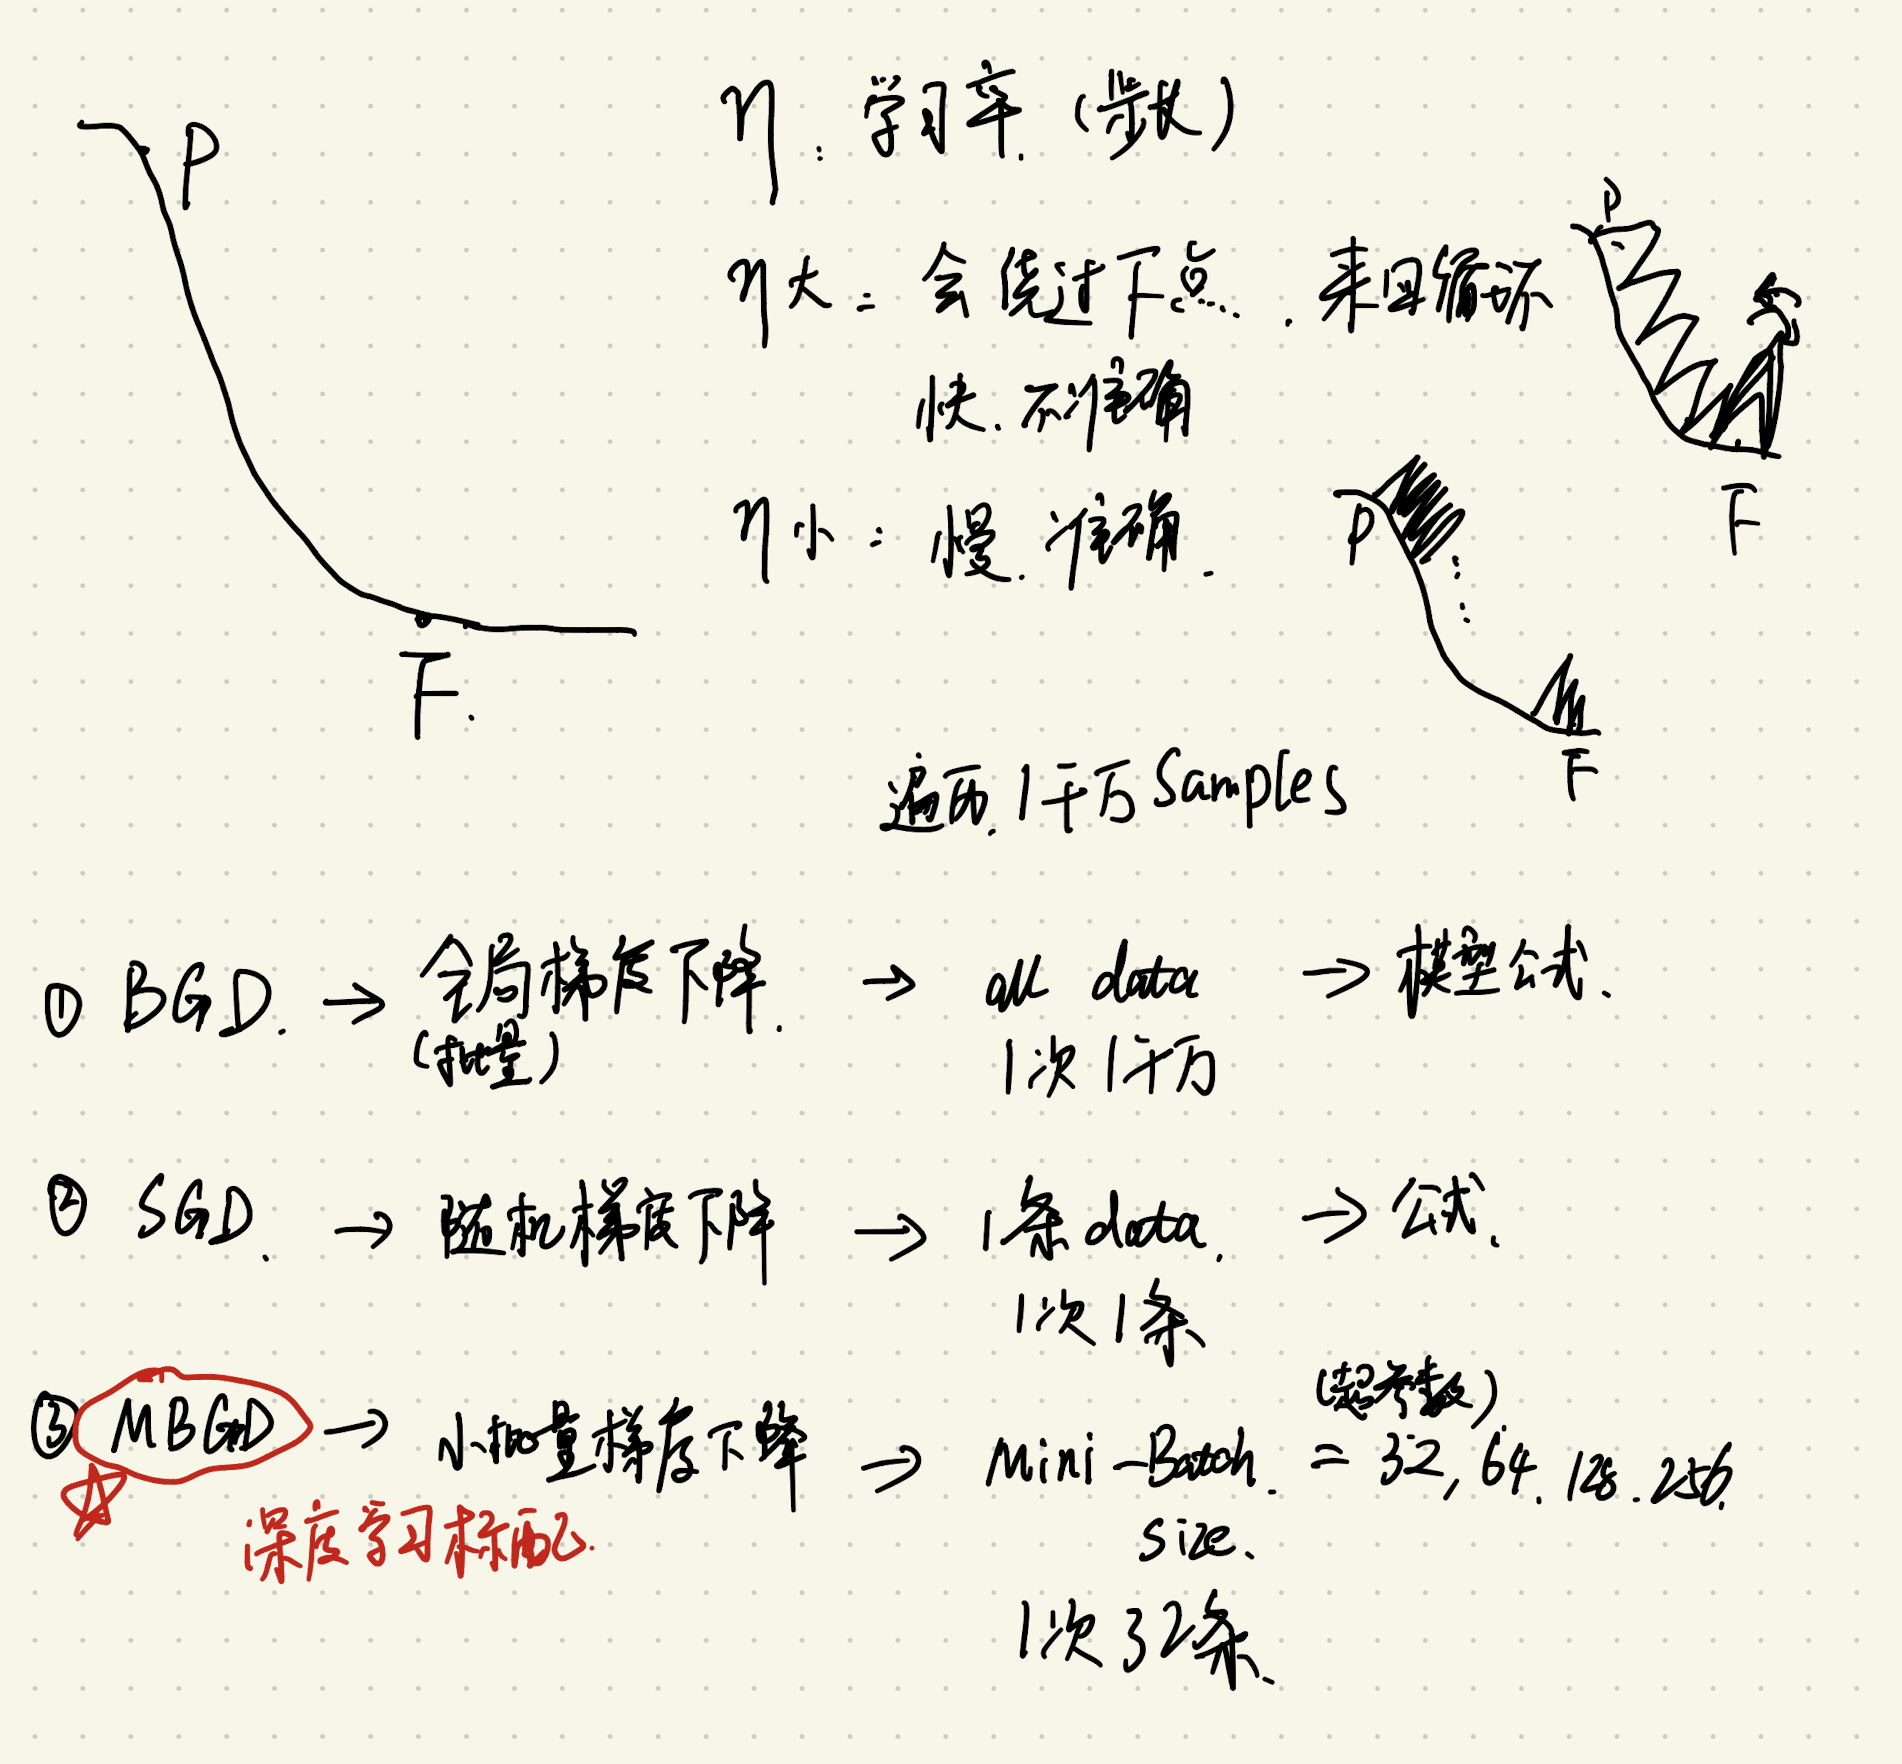 P
η: 学习率. (步长)
η大: 会绕过下点... 来回循环
快. 不准确
P
F
η小: 慢. 准确.
P
F
F.
遍历. 1千万 Samples
① BGD. → 全局梯度下降. → all data → 模型公式.
(批量) 1次 1千万
② SGD. → 随机梯度下降 → 1条 data. → 公式.
1次 1条
(超参数)
③ MBGD → 小批量梯度下降 → Mini-Batch. = 32, 64. 128. 256.
深度学习标配. size.
1次 32条.